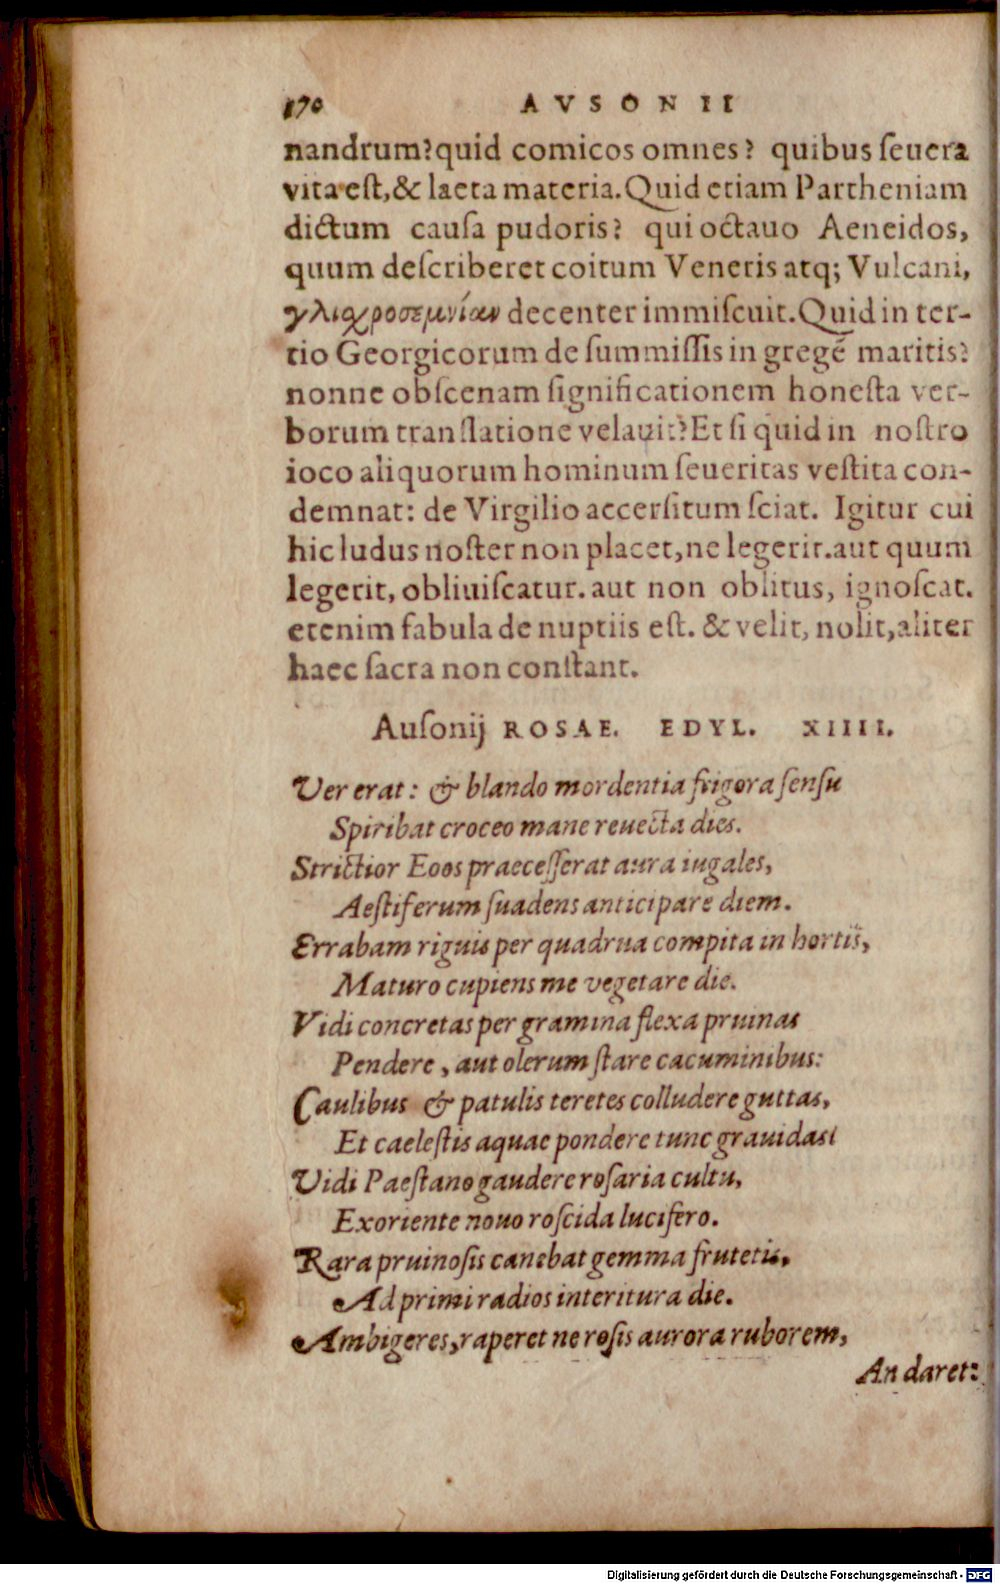 170 AVSONII
nandrum? quid comicos omnes? quibus ſeuera
vita eſt, & laeta materia. Quid etiam Partheniam
dictum cauſa pudoris? qui octauo Aeneidos,
quum deſcriberet coitum Veneris atq; Vulcani,
γλιοχροσεμνίαν decenter immiſcuit. Quid in ter-
tio Georgicorum de ſummiſſis in gregē maritis?
nonne obſcenam ſignificationem honeſta ver-
borum tranſlatione velauit? Et ſi quid in noſtro
ioco aliquorum hominum ſeueritas veſtita con-
demnat: de Virgilio accerſitum ſciat. Igitur cui
hic ludus noſter non placet, ne legerit. aut quum
legerit, obliuiſcatur. aut non oblitus, ignoſcat.
etenim fabula de nuptiis eſt. & velit, nolit, aliter
haec ſacra non conſtant.
Auſonij ROSAE. EDYL. XIIII.
Ver erat: & blando mordentia frigora ſenſu
Spiribat croceo mane reuecta dies.
Strictior Eoos praeceſſerat aura iugales,
Aeſtiferum ſuadens anticipare diem.
Errabam riguis per quadrua compita in hortis,
Maturo cupiens me vegetare die.
Vidi concretas per gramina flexa pruinas
Pendere, aut olerum ſtare cacuminibus:
Caulibus & patulis teretes colludere guttas,
Et caeleſtis aquae pondere tunc grauidas:
Vidi Paeſtano gaudere roſaria cultu,
Exoriente nouo roſcida lucifero.
Rara pruinoſis canebat gemma frutetis,
Ad primi radios interitura die.
Ambigeres, raperet ne roſis aurora ruborem,
An daret:
Digitalisierung gefördert durch die Deutsche Forschungsgemeinschaft - DFG